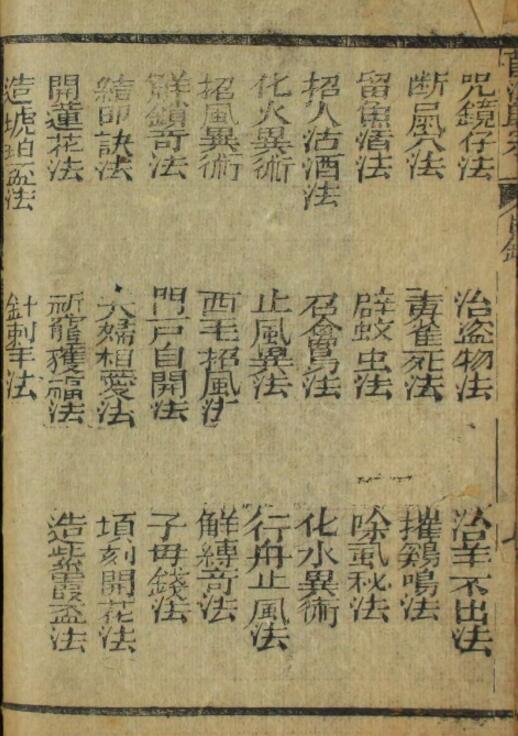 咒鏡仔法 治盗物法 治羊不出法
断風穴法 毒雀死法 摧鷄鳴法
留魚酒法 辟蚊虫法 除虱秘法
招人沽酒法 召禽法 化水異術
化火異術 止風異法 行舟止風法
招風異術 西毛招風法 解縛奇法
解鎖奇法 門戸自開法 子母錢法
結印訣法 夫婦相愛法 頃刻開花法
開蓮花法 祈龍獲福法 造紫霞盃法
造琥珀盃法 針刺羊法